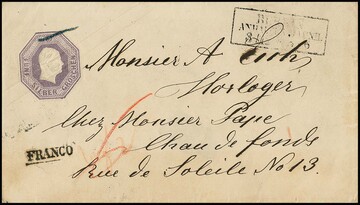 FUNF SILBER GROSCHEN
Monsieur A
Horloger
Chez Monsieur Pape
Chau de fonds
Rue de Soleile No 13.
FRANCO